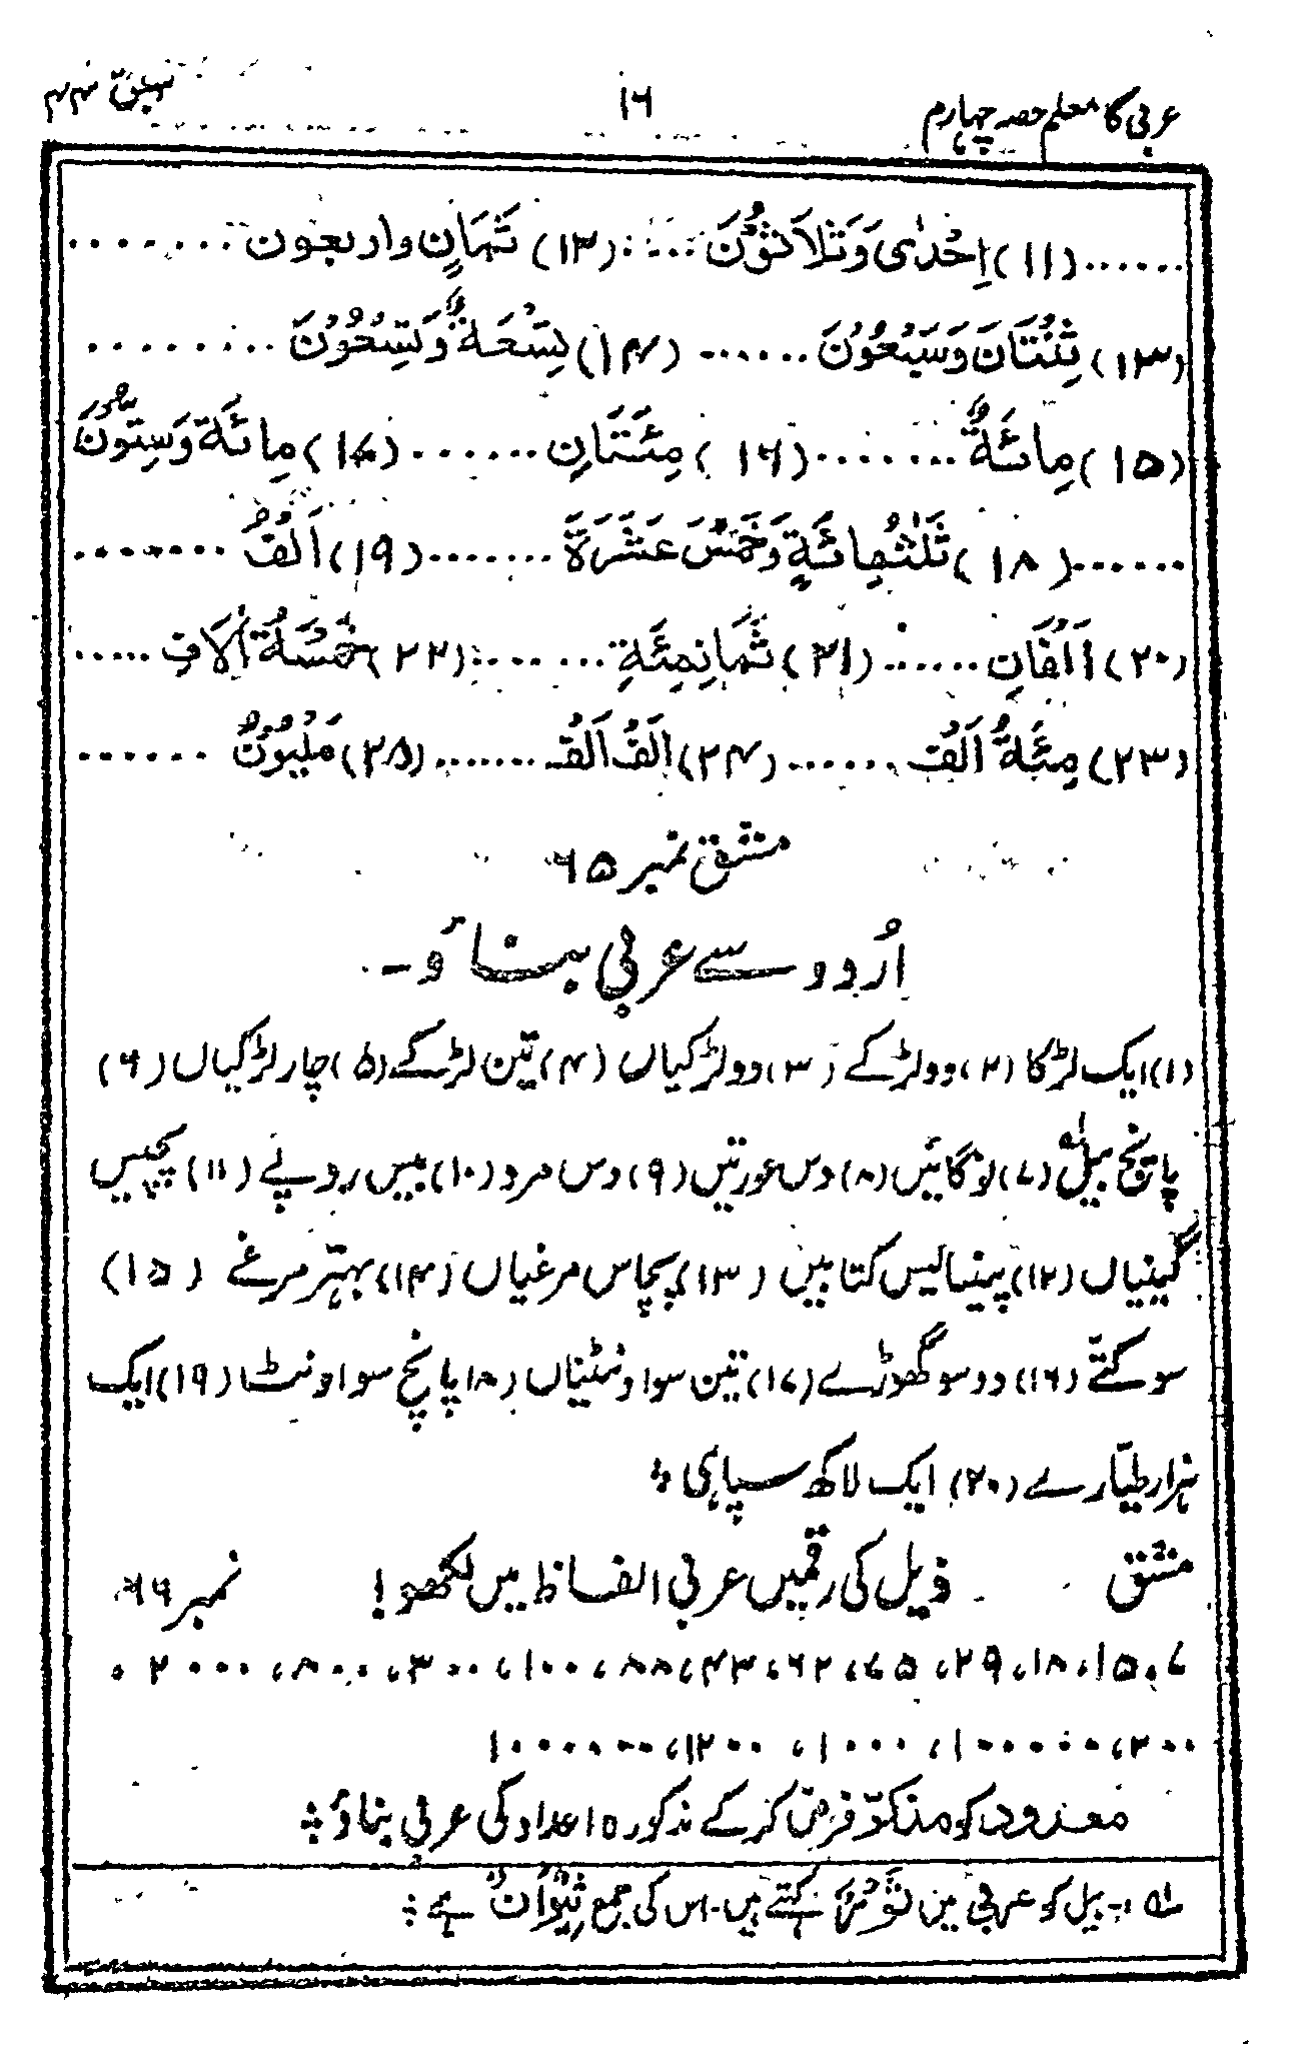 عربی کا معلم حصہ چہارم ۱۶ سبق نمبر ۴۴
......(۱۱) اِحْدٰی وَثَلاَثُوْنَ .....(۱۲) ثَمَانٍ واربعون ........
(۱۳) ثِنْتَانَ وَسَبْعُوْنَ ...... (۱۴) تِسْعَةٌ وَّتِسْعُوْنَ ........
(۱۵) مِائَةٌ ........(۱۶) مِئَتَانِ .......(۱۷) مِائَة وَسِتّوْنَ
......(۱۸) ثَلٰثُمِائَةٍ وَخَمْسَ عَشَرَةَ ........(۱۹) اَلْفٌ ........
(۲۰) اَلْفَانِ .......(۲۱) ثَمَانِمِئَةِ ........(۲۲) خَمْسَةُ اٰلَافِ .....
(۲۳) مِئَةُ اَلْفِ ......(۲۴) اَلْفُ اَلْفِ ........(۲۵) مَلْیُوْنٌ ......
مشق نمبر ۶۵
اُردو سے عربی بناؤ۔
(۱) ایک لڑکا (۲) دو لڑکے (۳) دو لڑکیاں (۴) تین لڑکے (۵) چار لڑکیاں (۶)
پانچ بیل؎۱ (۷) نو گائیں (۸) دس عورتیں (۹) دس مرد (۱۰) بیس روپے (۱۱) پچیس
گینیاں (۱۲) پینتالیس کتابیں (۱۳) پچاس مرغیاں (۱۴) بہتر مرغے (۱۵)
سو کتّے (۱۶) دو سو گھوڑے (۱۷) تین سو اونٹنیاں (۱۸) پانچ سو اونٹ (۱۹) ایک
ہزار طیّارے (۲۰) ایک لاکھ سپاہی ؞
مشق ذیل کی رقمیں عربی الفاظ میں لکھو! نمبر ۶۶
۷، ۱۵، ۱۸، ۲۹، ۷۵، ۶۲، ۴۳، ۸۸، ۱۰۰، ۳۰۰، ۸۰۰، ۲۰۰۰،
۲۰۰، ۱۰۰۰۰۰، ۱۰۰۰، ۱۲۰۰، ۱۰۰۰۰۰۰
معدود کو مذکّر فرض کر کے مذکورہ اعداد کی عربی بناؤ ؞
؎۱ :۔ بیل کو عربی میں ثَوْرٌ کہتے ہیں۔ اس کی جمع ثِیْرَانٌ ہے ؞